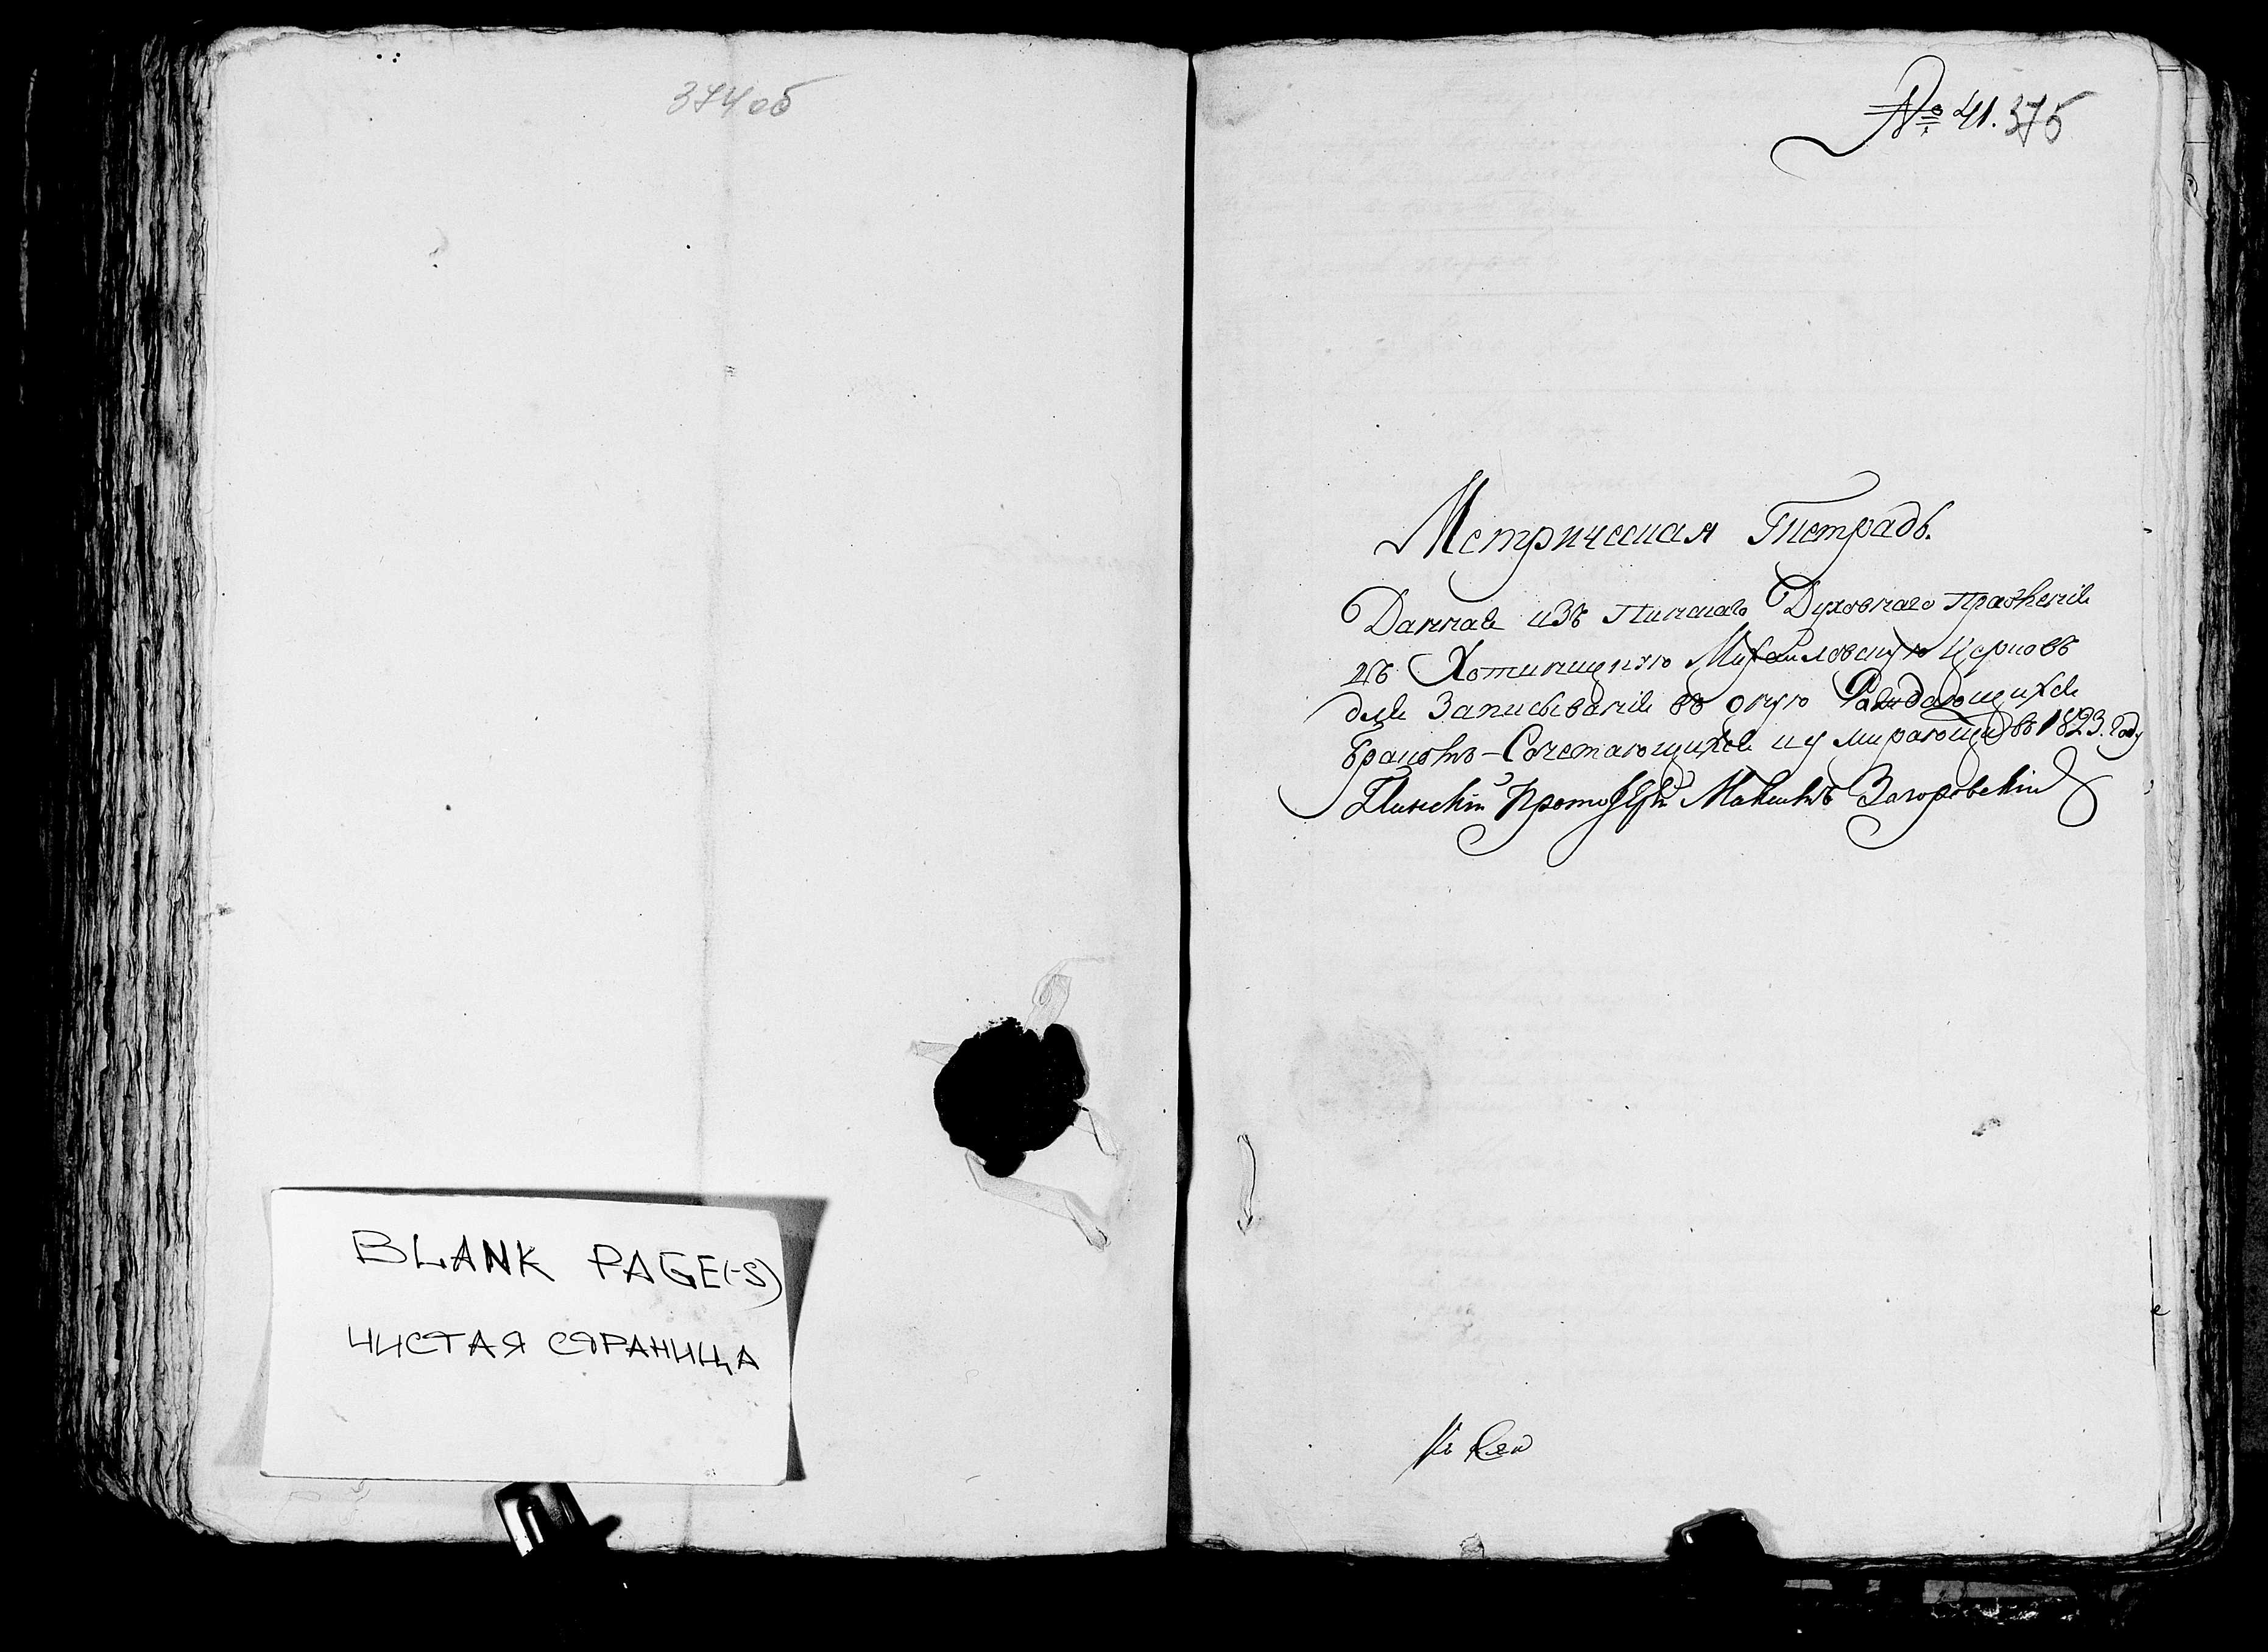 374 об
BLANK PAGE(-S)
ЧИСТАЯ СТРАНИЦА
№ 41. 375
Метрическая Тетрадь.
Данная изъ Пинскаго Духовнаго правленія
въ Хотиницкую Михайловскую Церковь
для Записыванія въ оную Раждающихся
бракомъ-Сочетающихся и умирающихъ въ 1823. Году
Пинскій Протоіерей Загоровскій